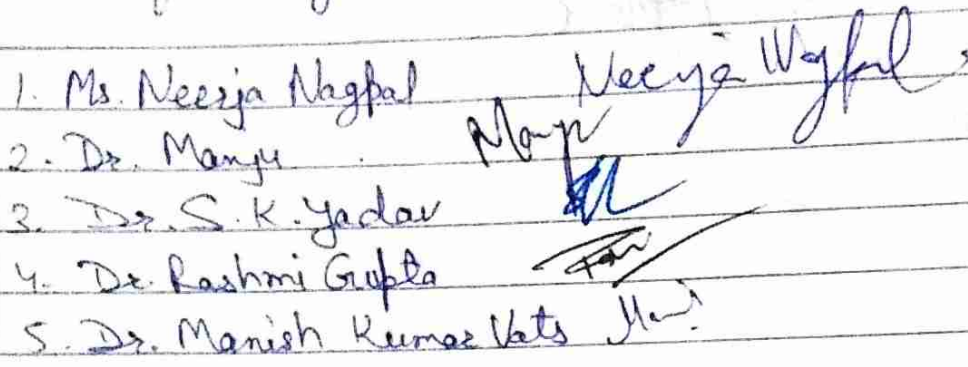 1. Ms. Neerja Nagpal Neerja Nagpal
2. Dr. Manju Manju
3. Dr. S. K. Yadav
4. Dr. Rashmi Gupta
5. Dr. Manish Kumar Vats